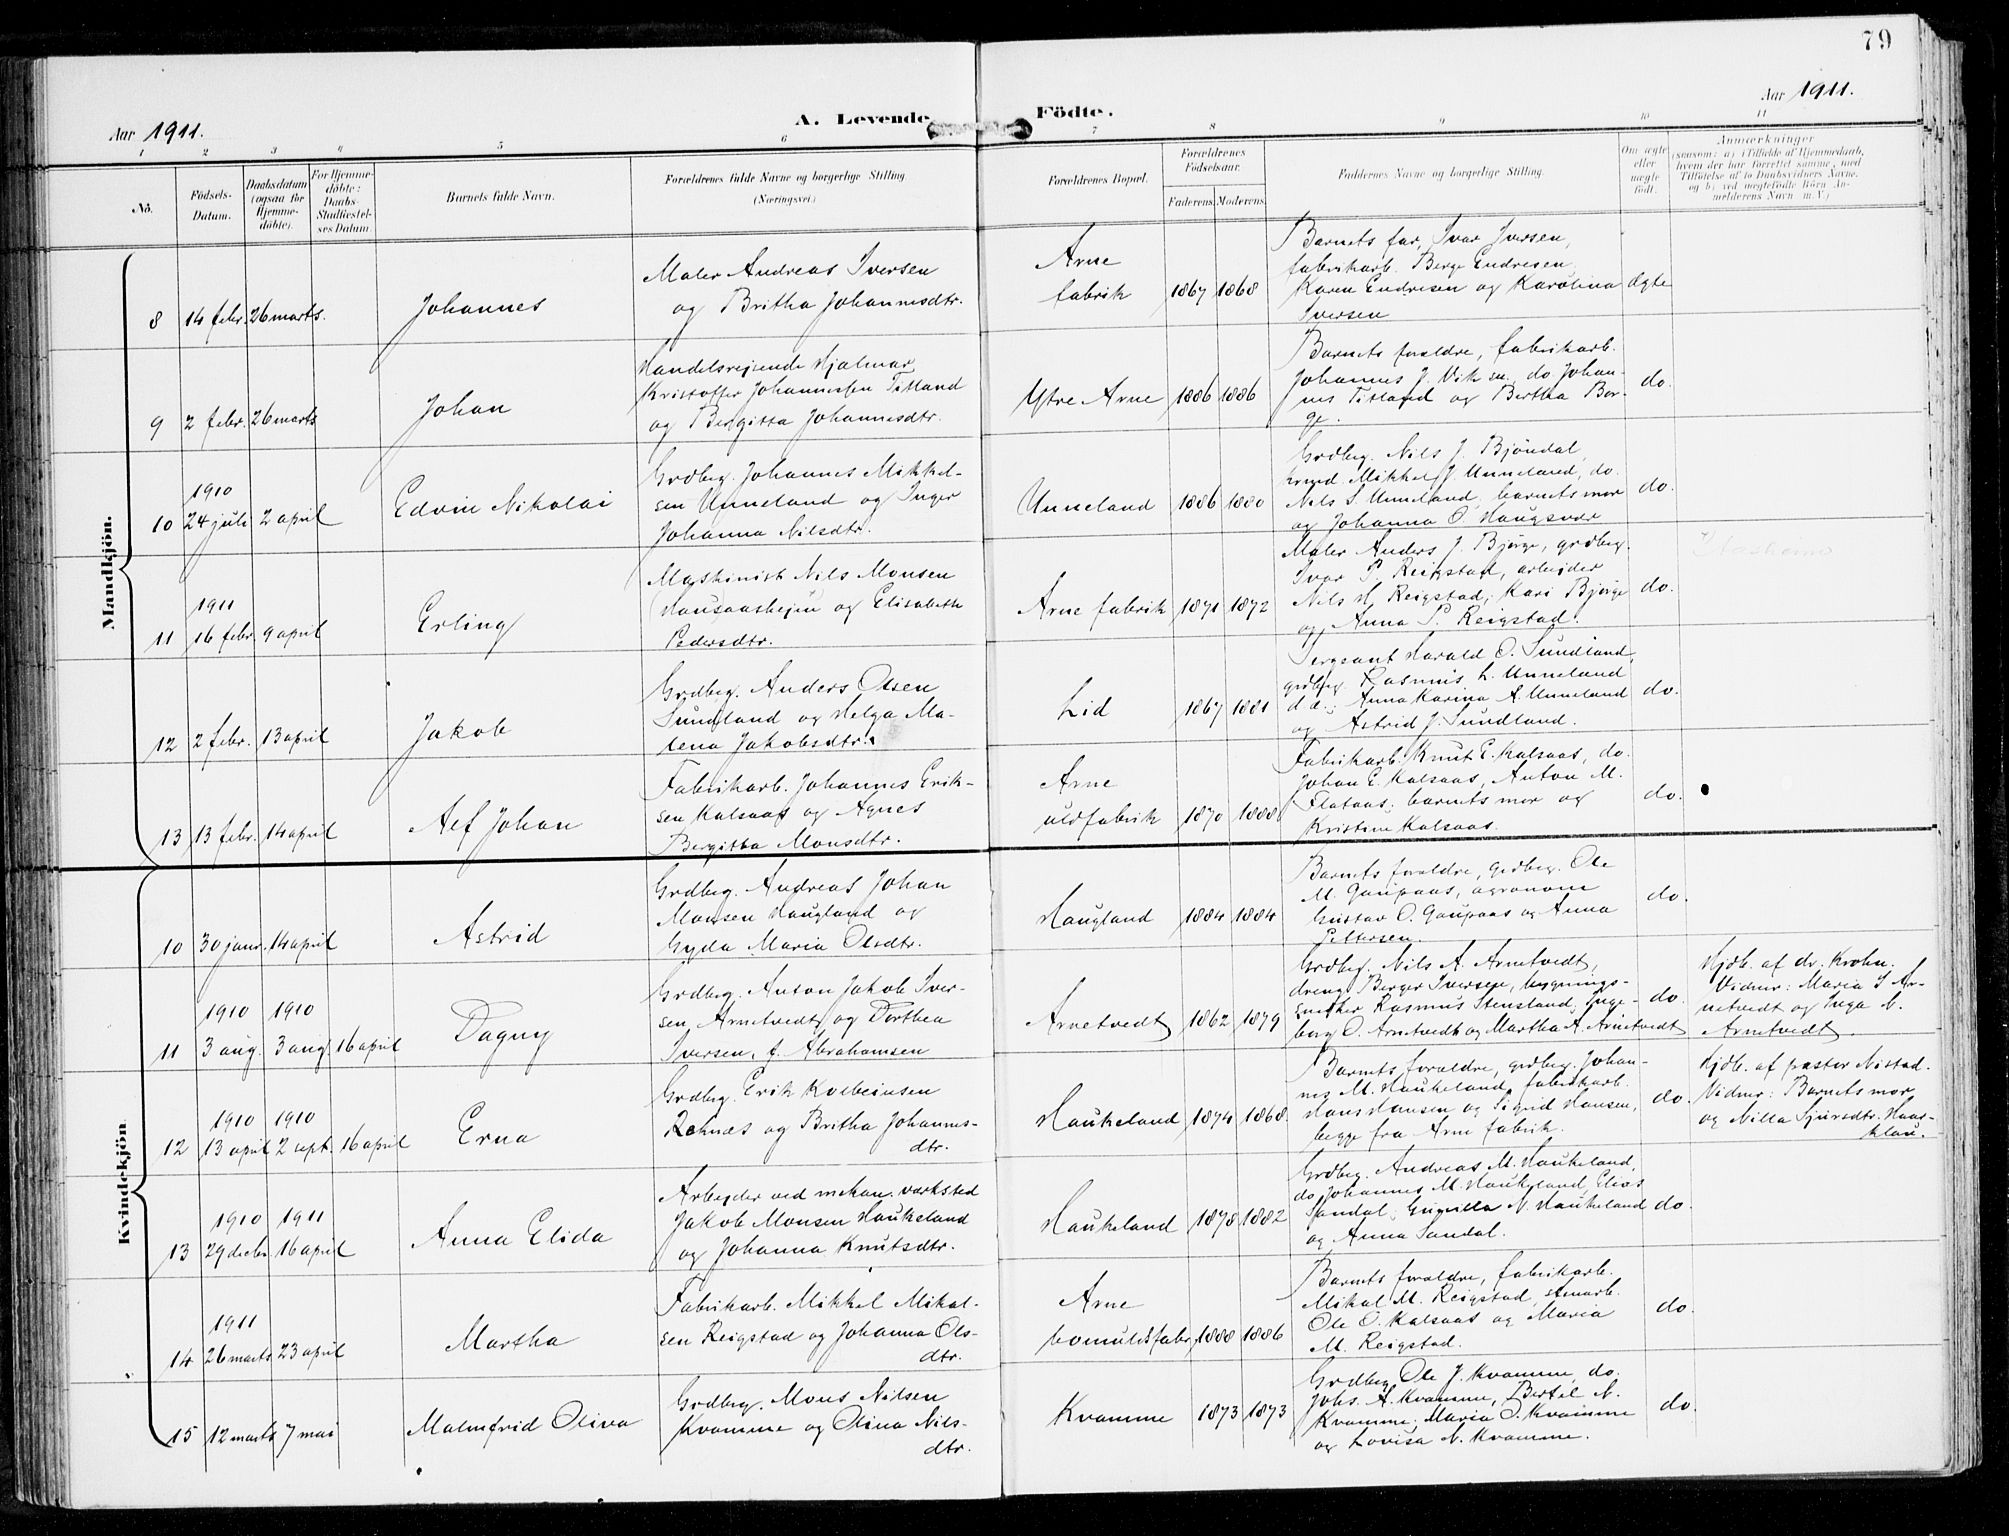 79
Aar 1911.
A. Levende Födte.
Aar 1911.
1 2 3 4 5 6 7 8 9 10 11
No.
Födsels-
Datum.
Daabsdatum
(ogsaa for
Hjemme-
döbte).
For Hjemme-
döbte:
Daabs-
Stadfæstel-
ses Datum.
Barnets fulde Navn.
Forældrenes fulde Navne og borgerlige Stilling.
(Næringsvei.)
Forældrenes Bopæl.
Forældrenes
Födselsaar.
Faderens. Moderens.
Faddernes Navne og borgerlige Stilling.
Om ægte
eller
uægte
født.
Anmærkninger
(saasom: a) i Tilfælde af Hjemmedaab,
hvem der har forrettet samme, med
Tilföielse af to Daabsvidners Navne,
og b) ved uegtefödte Börn An-
melderens Navn m. V.)
Mandkjön.
8 14 febr. 26 marts.
Johannes
Maler Andreas Iversen
og Britha Johannesdtr.
Arne
fabrik
1867 1868
Barnets far, Ivar Iversen,
fabrikarb. Berge Endresen,
Karen Endresen og Karolina
Iversen
Ægte
9 2 febr. 26 marts
Johan
Handelsrejsende Hjalmar
Kristoffer Johannessen Titland
og Bergitta Johannesdtr.
Ytre Arne
1886 1886
Barnets forældre, fabrikarb.
Johannes J. Vik sen. do Johan-
nes Titland og Bertha Bor-
ge.
do.
1910
10 24 juli 2 april
Edvin Nikolai
Grdbrg. Johannes Mikkel-
sen Unneland og Inger
Johanna Nilsdtr.
Unneland
1886 1880
Grdbrg. Nils J. Bjøndal,
Mikkel J. Unneland, do.
Nils S Unneland, barnets mor
og Johanna O. Haugsvær
do.
1911
11 16 febr. 9 april
Erling
Maskinist Nils Monsen
Hansaashejen og Elisabeth
Pedersdtr.
Arne fabrik
1871 1872
Maler Anders J. Bjørge, grdbrg.
Ivar P. Reigstad, arbejder
Nils H. Reigstad; Kari Bjørge
og Anna P. Reigstad.
do.
12 2 febr. 13 april
Jakob
Grdbrg. Anders Olsen
Sundland og Helga Ma-
lena Jakobsdtr.
Lid
1867 1881
Sergeant Harald O. Sundland,
grdbrg. Rasmus L. Unneland
d.æ.; Anna Karina A. Unneland
og Astrid J. Sundland.
do.
13 13 febr. 14 april
Alf Johan
Fabrikarb. Johannes Erik-
sen Kalsaas og Agnes
Bergitta Monsdtr.
Arne
uldfabrik
1870 1888
Fabrikarb. Knut E. Kalsaas, do.
Johan E. Kalsaas, Anton M.
Flataas; barnets mor og
Kristine Kalsaas.
do.
Kvindekjön.
10 30 janr. 14 april
Astrid
Grdbrg. Andreas Johan
Monsen Haugland og
Gyda Maria Olsdtr.
Haugland
1884 1884
Barnets forældre, grdbrg. Ole
M. Gaupaas, agronom
Gustav O. Gaupaas og Anna
Pettersen.
do.
1910 1910
11 3 aug. 3 aug. 16 april
Dagny
Grdbrg. Anton Jakob Iver-
sen Arnetvedt og Dorthea
Iversen, f. Abrahamsen
Arnetvedt
1862 1879
Grdbrg. Nils A. Arnetvedt,
dreng Berger Iversen, bygnings-
snedker Rasmus Stensland, Inge-
borg O. Arnetvedt og Martha A. Arnetvedt
do.
Hjdb. af dr. Krohn.
Vidner: Maria I Ar-
netvedt og Inga N.
Arnetvedt.
1910 1910
12 13 april 2 sept. 16 april
Erna
Grdbrg. Erik Kolbeinsen
Reknæs og Britha Johannes-
dtr.
Haukeland
1874 1868
Barnets forældre, grdbrg. Johan-
nes M. Haukeland, fabrikarb.
Hans Hansen og Sigrid Hansen,
begge fra Arne fabrik.
do.
Hjdb. af pastor Nistad.
Vidner: Barnets mor
og Nilla Sjursdtr. Haar-
klau.
1910 1911
13 29 decbr. 16 april
Anna Elida
Arbejder ved mekan. værksted
Jakob Monsen Haukeland
og Johanna Knutsdtr.
Haukeland
1878 1882
Grdbrg. Andreas M. Haukeland,
do Johannes M. Haukeland, Elias
Sandal; Gunilla N. Haukeland
og Anna Sandal.
do.
1911
14 26 marts 23 april
Martha
Fabrikarb. Mikkel Mikal-
sen Reigstad og Johanna Ols-
dtr.
Arne
bomuldsfabr.
1888 1886
Barnets forældre, fabrikarb.
Mikal M. Reigstad, stenarb.
Ole O. Kalsaas og Maria
M. Reigstad.
do.
15 12 marts 7 mai
Malmfrid Oliva
Grdbrg. Mons Nilsen
Kvamme og Olina Nils-
dtr.
Kvamme
1873 1873
Grdbrg Ole J. Kvamme, do.
Johs. A. Kvamme, Bertel N.
Kvamme; Maria O. Kvamme
og Lovisa N. Kvamme.
do.